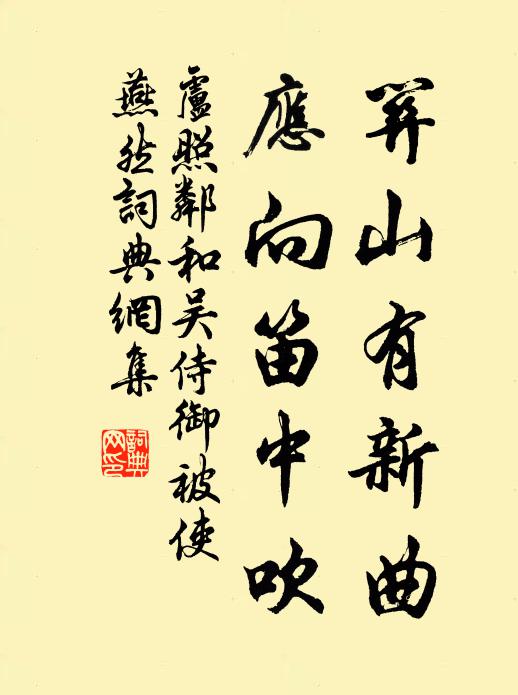 關山有新曲
應向笛中吹
盧照鄰和吴侍御被使
燕然詞典網集
詞典
网印